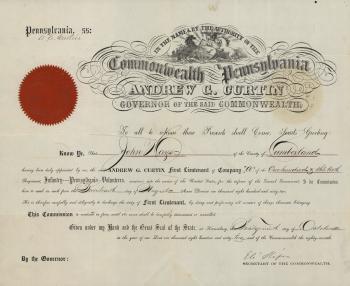 Pennsylvania, ss:
A. G. Curtin
IN THE NAME & BY THE AUTHORITY OF THE
Commonwealth of Pennsylvania
ANDREW G. CURTIN
GOVERNOR OF THE SAID COMMONWEALTH.
To all to whom these Presents shall Come, Sends Greeting:
Know Ye, That John Hays of the County of Cumberland
having been duly appointed by me, the said ANDREW G. CURTIN First Lieutenant of Company "A" of the One hundred & thirtieth
Regiment, Infantry—Pennsylvania—Volunteers, I do Commission
him to rank as such from the day of August Anno Domini one thousand eight hundred and sixty two
He is therefore carefully and diligently to discharge the duty of First Lieutenant, by doing and performing all manner of things thereunto belonging.
This Commission to continue in force until its term shall be lawfully determined or annulled.
Given under my Hand and the Great Seal of the State, at Harrisburg, this day of October
in the year of our Lord one thousand eight hundred and sixty two and of the Commonwealth the eighty-seventh
By the Governor:
Eli Slifer
SECRETARY OF THE COMMONWEALTH.